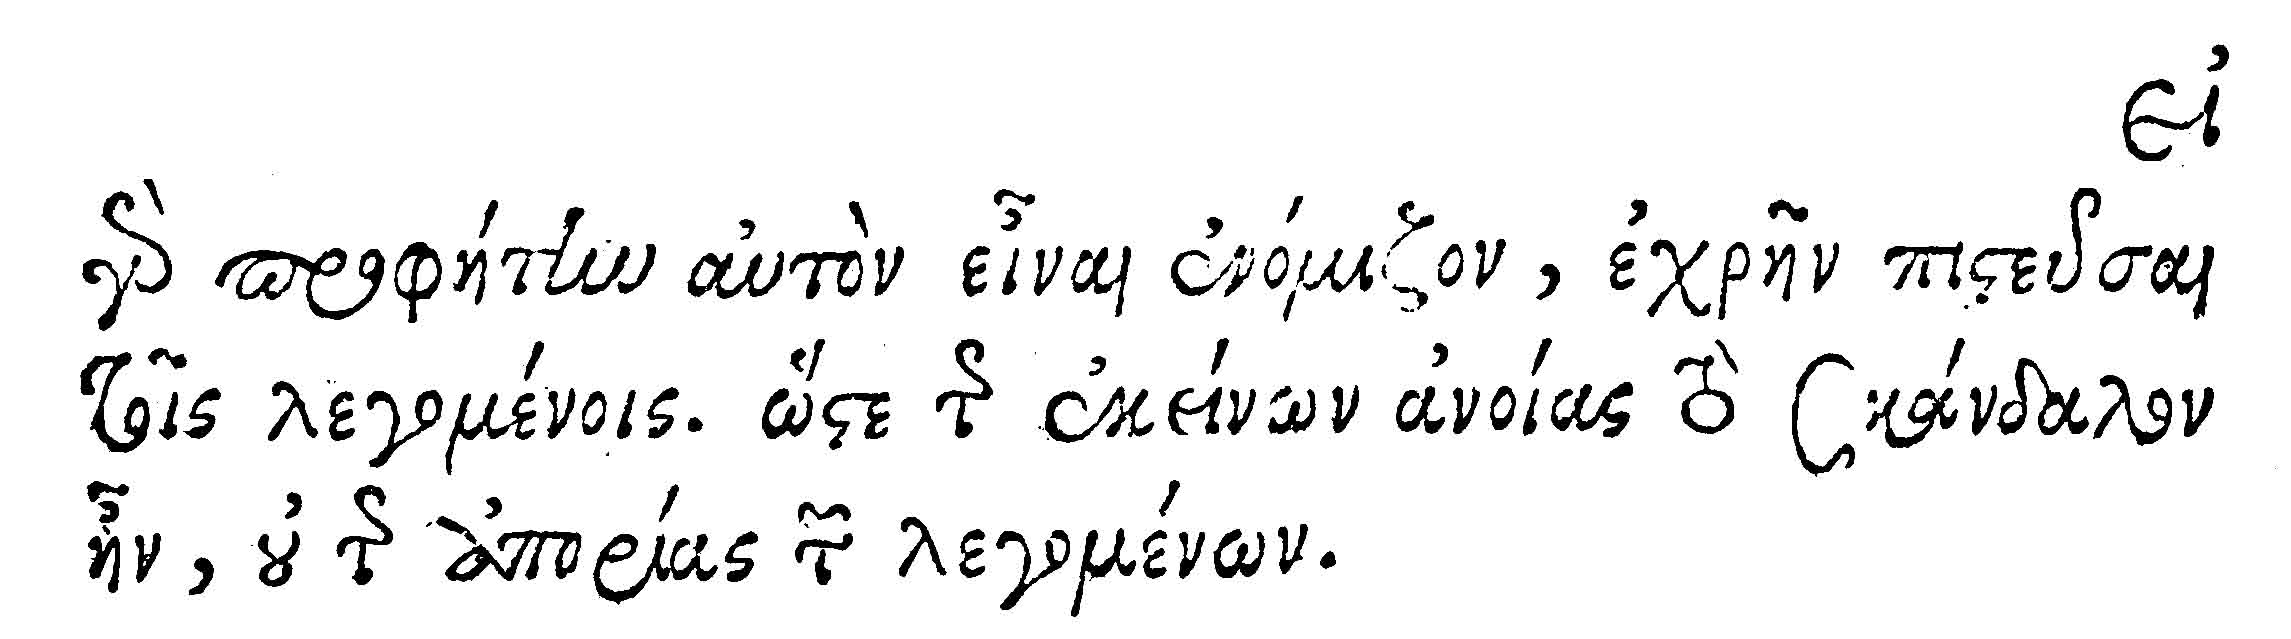 εἰ
γὰρ προφήτην αὐτὸν εἶναι ἐνόμιζον, ἐχρῆν πιστεῦσαι
τοῖς λεγομένοις. ὥστε τῆς ἐκείνων ἀνοίας τὸ σκάνδαλον
ἦν, οὐ τῆς ἀπορίας τῶν λεγομένων.